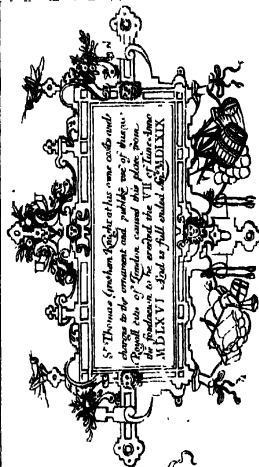 Sr Thomas Gresham Knight at his owne costs and
charges to the ornament and publike use of this
Royall Citie of London caused this place from
the fondacion to be erected the VII of Iune Anno
MDLXVI And is full ended Ano MDLXIX